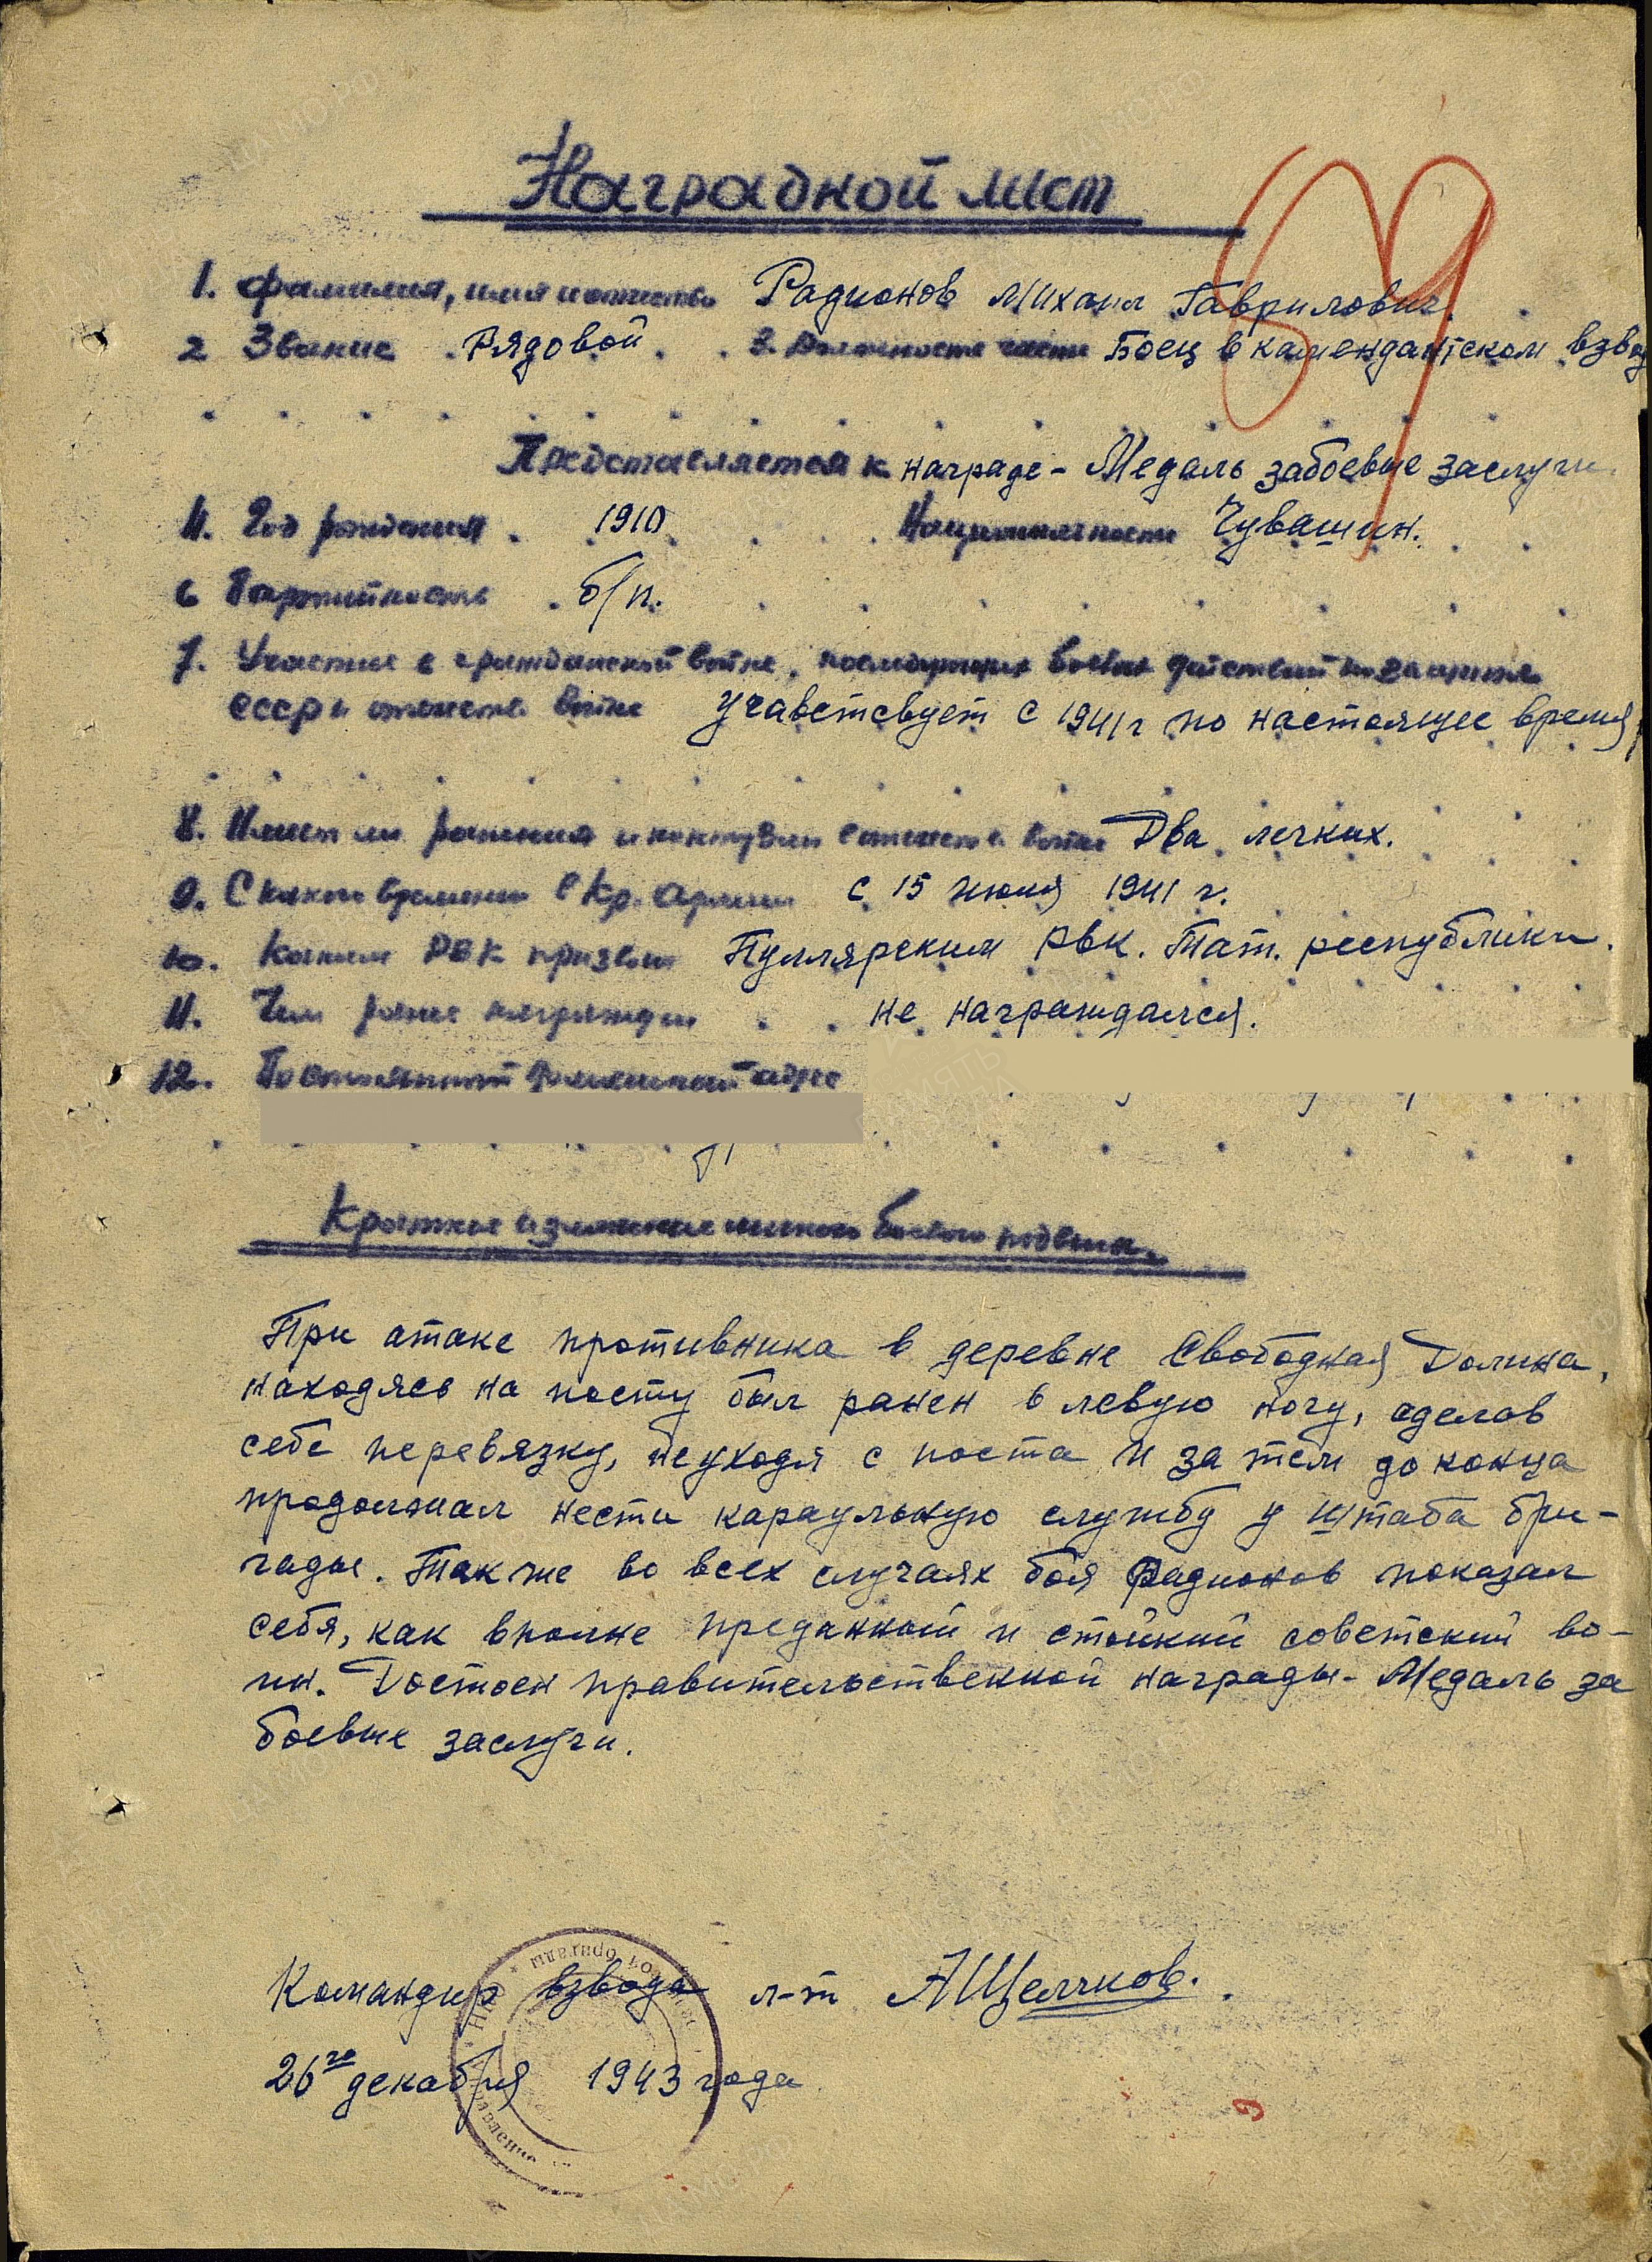 Наградной лист
1. Фамилия, имя и отчество Радионов Михаил Гаврилович.
2 Звание Рядовой 3. Должность часть Боец в камендантском взвод
Представляется к награде - Медаль за боевые заслуги
4. Год рождения 1910 Национальность Чувашин.
6 Партийность б/п.
7. Участие в гражданской войне, последующих боевых действий по защите
СССР и отечеств. войне учавствевует с 1941 г по настоящее время
8. Имеет ли ранения и контузии в отечеств. войне Два легких.
9. С какого времени в Кр. Армии с 15 июля 1941 г.
10. Каким РВК призван Пуллярским РВК. Тат. республики.
11. Чем ранее награжден не награждался.
12. Постоянный домашний адрес
Краткое изложение личного боевого подвига.
При атаке противника в деревне Свободная Долина,
находясь на посту был ранен в левую ногу, сделав
себе перевязку, не уходя с поста и за тем до конца
продолжал нести караульную службу у штаба бри-
гады. Так же во всех случаях боя Радионов показал
себя, как вполне преданный и стойкий советский во-
ин. Достоен правительственной награды - Медаль за
боевые заслуги.
Командир взвода л-т АЩелчков.
26го декабря 1943 года